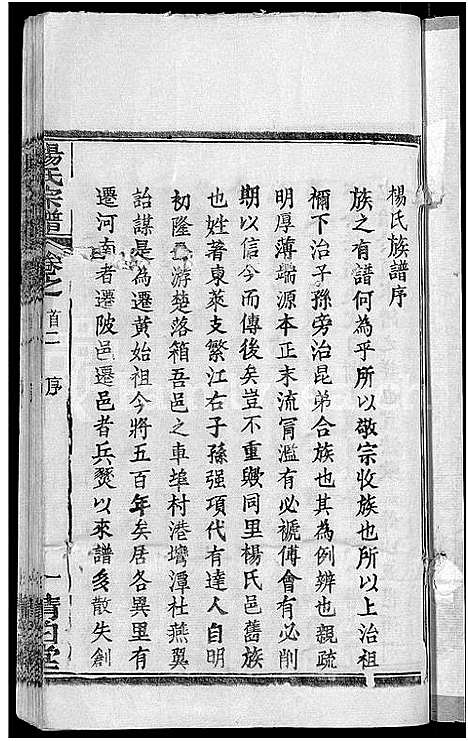 楊氏族譜序
族之有譜何為乎所以敬宗收族也所以上治祖
禰下治子孫旁治昆弟合族也其為例辨也親疏
明厚薄端源本正末流甯濫有必褫傅會有必削
期以信今而傳後矣豈不重歟同里楊氏邑舊族
也姓著東萊支繁江右子孫强項代有達人自明
初隆 游楚落箱吾邑之車埠村港壪潭社燕翼
詒謀是為遷黄始祖今將五百年矣居各異里有
遷河南者遷陂邑遷邑者兵燹以來譜多散失創
楊氏宗譜 卷之 首二 序 一 清白堂